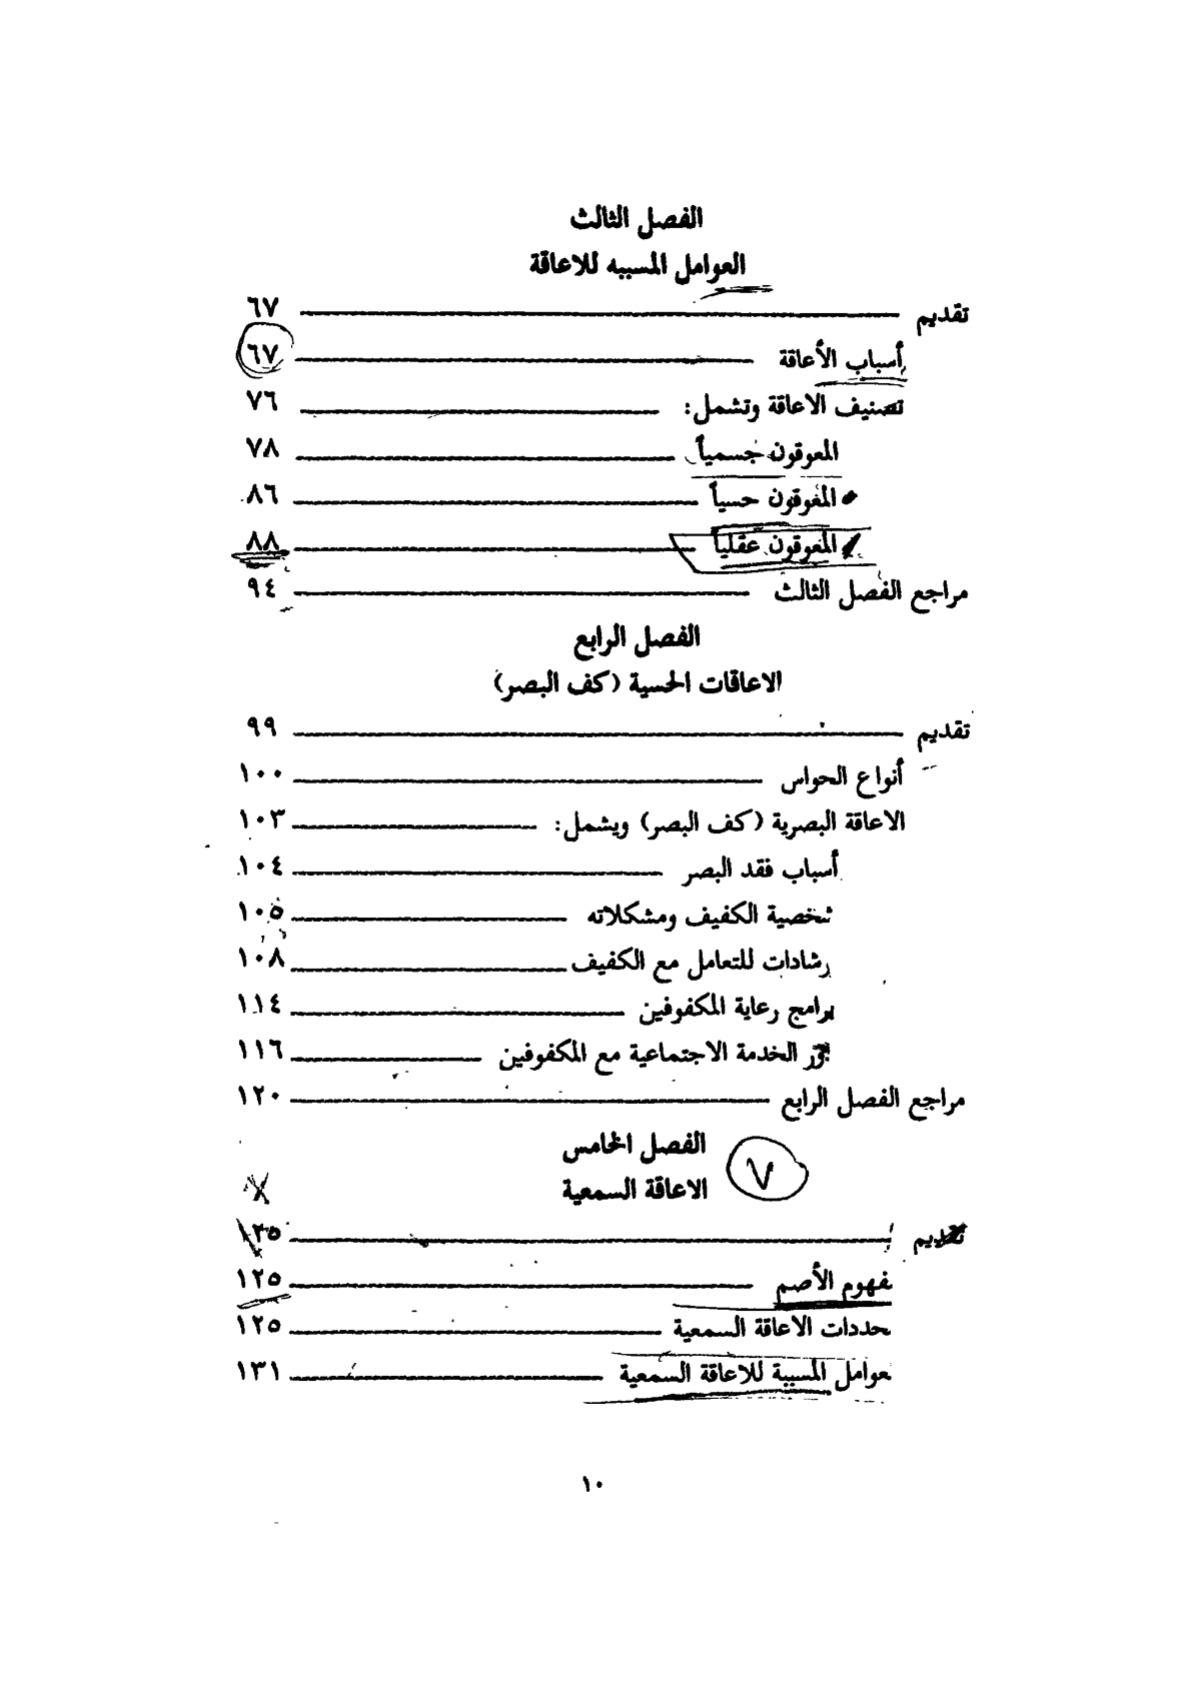 الفصل الثالث
العوامل المسببه للاعاقة
تقديم ٦٧
أسباب الأعاقة ٦٧
تصنيف الاعاقة وتشمل: ٧٦
المعوقون جسمياً ٧٨
المعوقون حسياً ٨٦
المعوقون عقلياً ٨٨
مراجع الفصل الثالث ٩٤
الفصل الرابع
الاعاقات الحسية (كف البصر)
تقديم ٩٩
أنواع الحواس ١٠٠
الاعاقة البصرية (كف البصر) ويشمل: ١٠٣
أسباب فقد البصر ١٠٤
شخصية الكفيف ومشكلاته ١٠٥
رشادات للتعامل مع الكفيف ١٠٨
برامج رعاية المكفوفين ١١٤
الخدمة الاجتماعية مع المكفوفين ١١٦
مراجع الفصل الرابع ١٢٠
الفصل الخامس
٧
الاعاقة السمعية
تقديم ١٢٥
فهوم الأصم ١٢٥
حددات الاعاقة السمعية ١٢٥
عوامل المسببة للاعاقة السمعية ١٣١
١٠